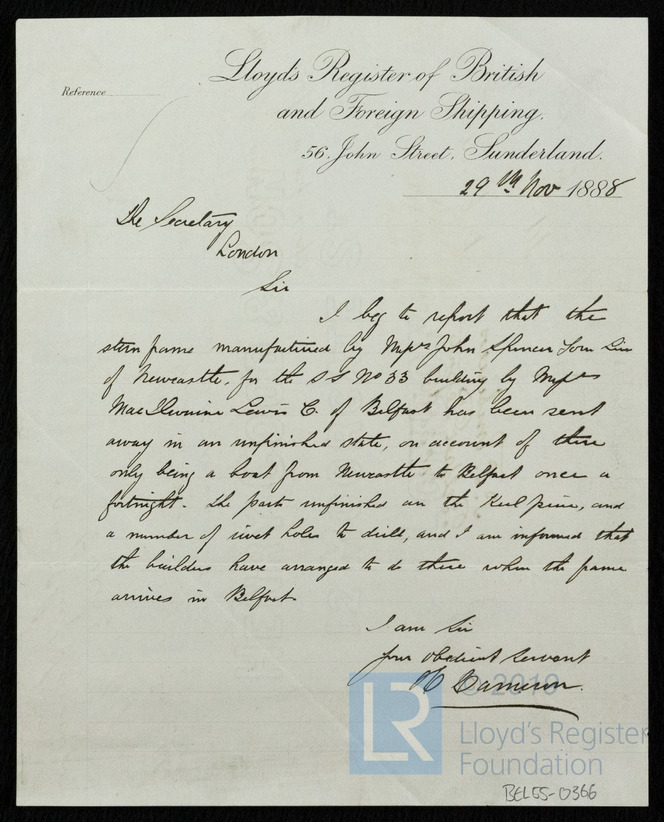 Lloyd's Register of British
Reference
and Foreign Shipping.
56. John Street, Sunderland.
29th Nov 1888
The Secretary
London
Sir
I beg to report that the
stern frame manufactured by Messrs John Spencer Sons
of Newcastle, for the S S No 33 building by Messrs
MacIlwaine Lewis C. of Belfast has been sent
away in an unfinished state, on account of there
only being a boat from Newcastle to Belfast once a
fortnight. The parts unfinished are the Keel piece, and
a number of rivet holes to drill, and I am informed that
the builders have arranged to do these when the frame
arrives in Belfast.
I am Sir
your obedient servant
Cameron.
© 2019
LR
Lloyd's Register
Foundation
BEL55-0366